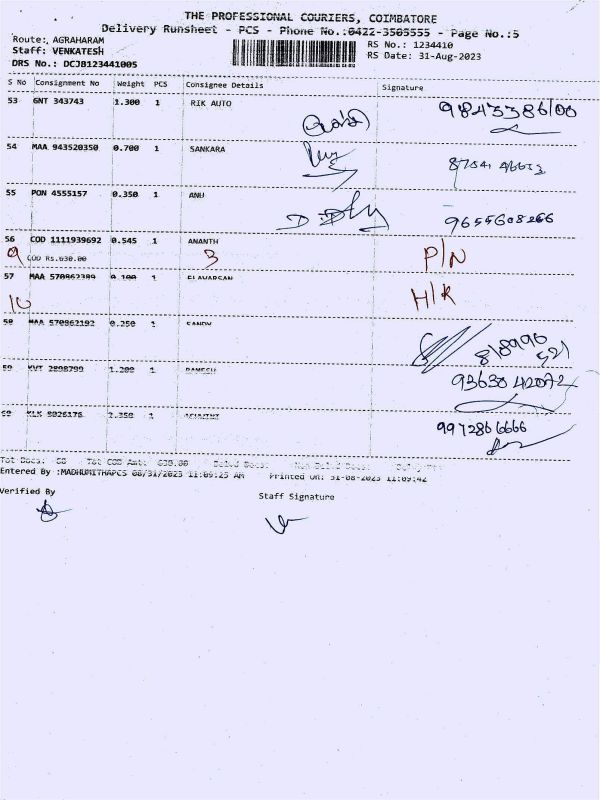 THE PROFESSIONAL COURIERS, COIMBATORE
Delivery Runsheet - PCS - Phone No.:0422-3505555 - Page No.:5
Route: AGRAHARAM
RS No.: 1234410
Staff: VENKATESH
RS Date: 31-Aug-2023
DRS No.: DCJB123441005
S No Consignment No Weight PCS Consignee Details Signature
53 GNT 343743 1.300 1 RIK AUTO
54 MAA 943520350 0.700 1 SANKARA
55 PON 4555157 0.350 1 ANU 9655608266
56 COD 1111939692 0.545 1 ANANTH P/N
9 COD Rs.630.00 3
57 MAA 570862389 0.100 1 ELAVARSAN H/K
10
58 MAA 570862192 0.250 1 SANDY 818996 521
59 KVT 2898799 1.200 1 RAMESH 93630 42072
60 KLK 8026176 2.350 1 9972866666
Tot Docs: 60 Tot COD Amt: 630.00
Entered By :MADHUMITHAPCS 08/31/2023 11:09:25 AM Printed On: 31-08-2023 11:09:42
Verified By
Staff Signature